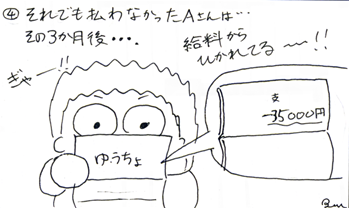 ④ それでも払わなかったAさんは…
その3か月後・・・.
給料から
ひかれてる〜〜!!
ぎゃー!!
ゆうちょ
支
-35000円